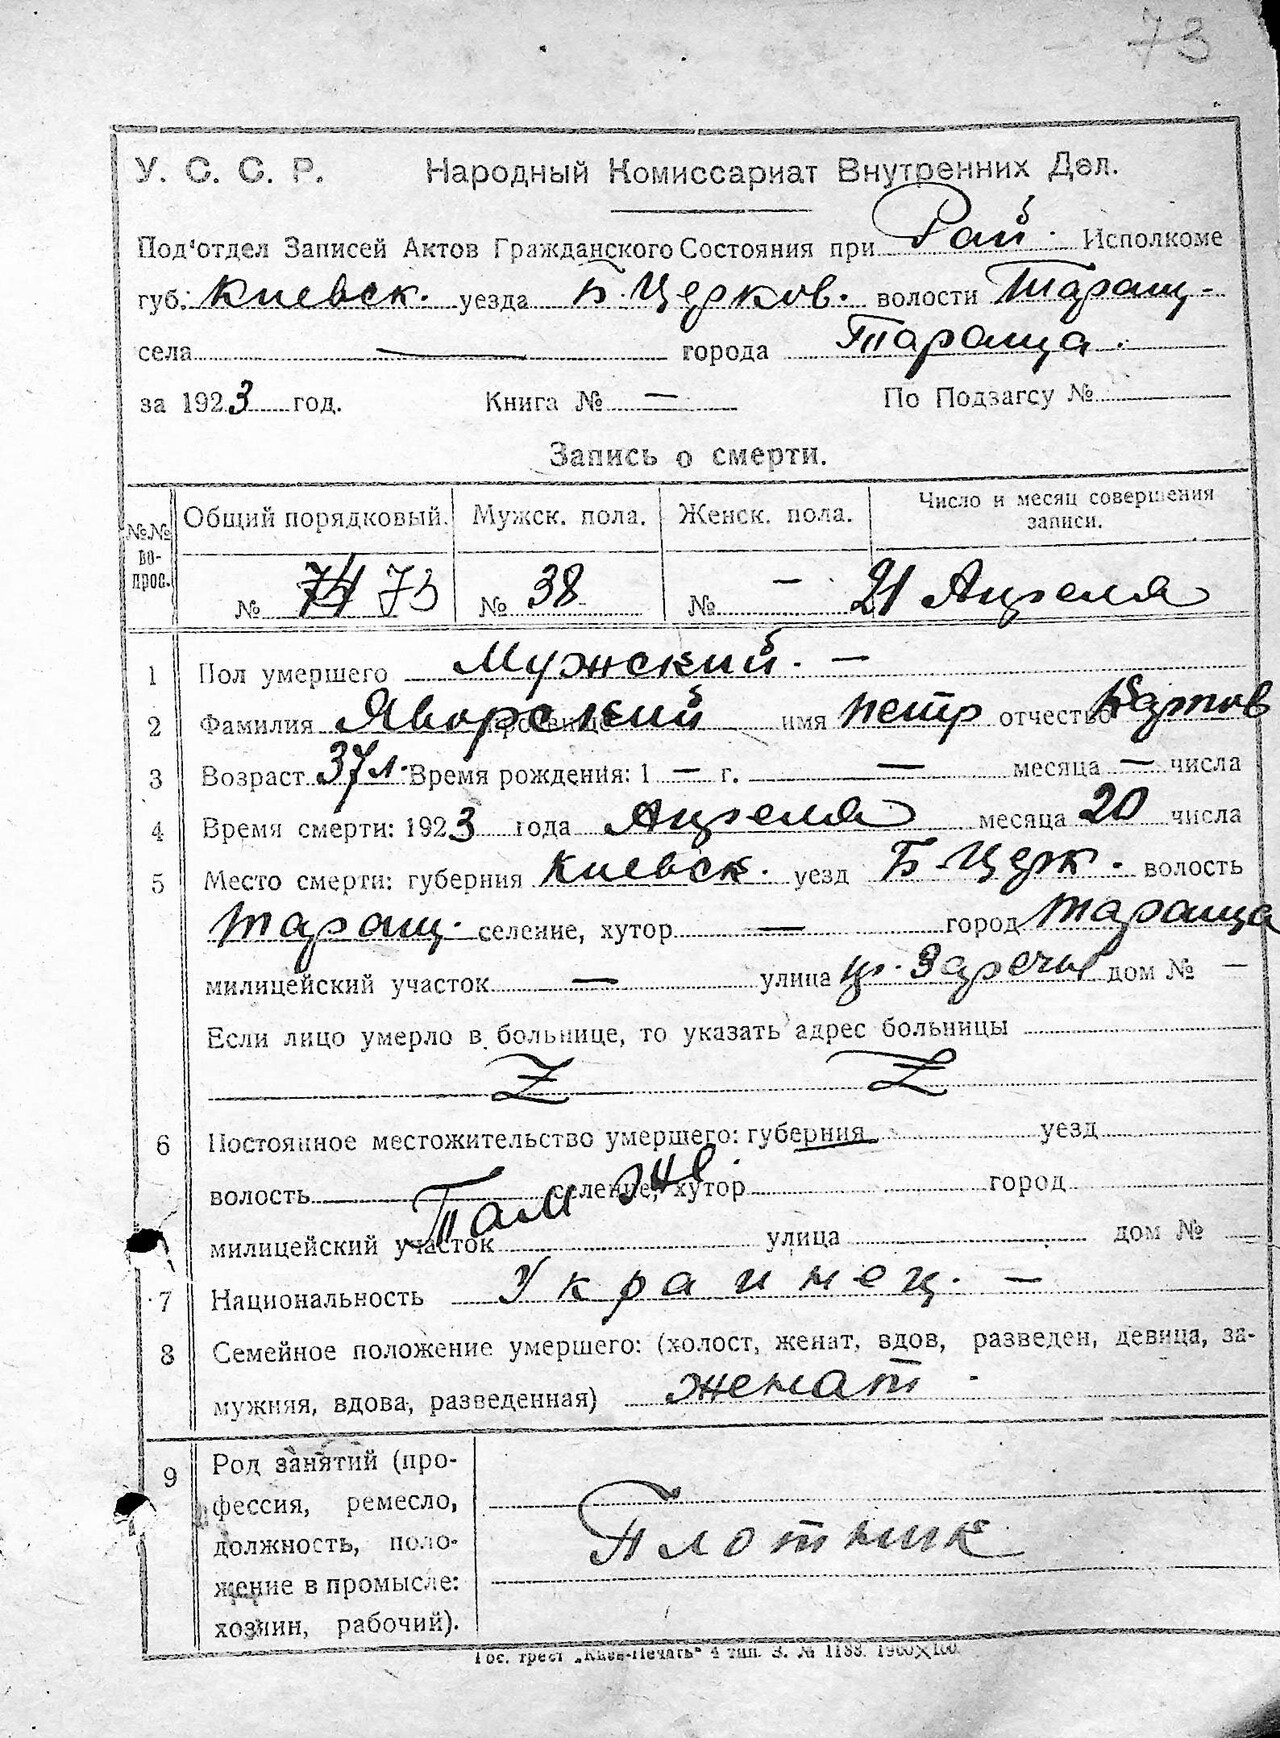 73
У. С. С. Р. Народный Комиссариат Внутренних Дел.
Под'отдел Записей Актов Гражданского Состояния при Рай. Исполкоме
губ. Киевск. уезда Б. Церков. волости Таращ.
села — города Тараща.
за 1923 год. Книга № — По Подзагсу №
Запись о смерти.
№№ во-прос. Общий порядковый. Мужск. пола. Женск. пола. Число и месяц совершения записи.
№ 74 73 № 38 № — 21 Апреля
1 Пол умершего Мужский. —
2 Фамилия прозвище Яворский имя Петр отчество
3 Возраст 37 л. Время рождения: 1 — г. — месяца — числа
4 Время смерти: 1923 года Апреля месяца 20 числа
5 Место смерти: губерния Киевск. уезд Б. Церк. волость
Таращ. селение, хутор — город Тараща
милицейский участок — улица Заречье дом № —
Если лицо умерло в больнице, то указать адрес больницы
Z Z
6 Постоянное местожительство умершего: губерния уезд
волость селение, хутор город
Там же.
милицейский участок улица дом №
7 Национальность Украинец. —
8 Семейное положение умершего: (холост, женат, вдов, разведен, девица, за-
мужняя, вдова, разведенная) женат.
9 Род занятий (про-
фессия, ремесло,
должность, поло-
жение в промысле:
хозяин, рабочий).
Плотник
Гос. трест „Киев-Печать“ 4 тип. З. № 1188. 1900×100.